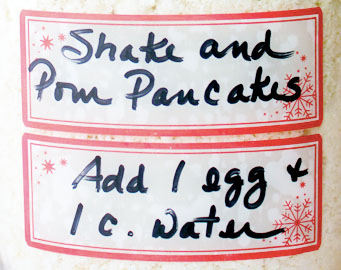 Shake and
Pour Pancakes
Add 1 egg &
1 c. water